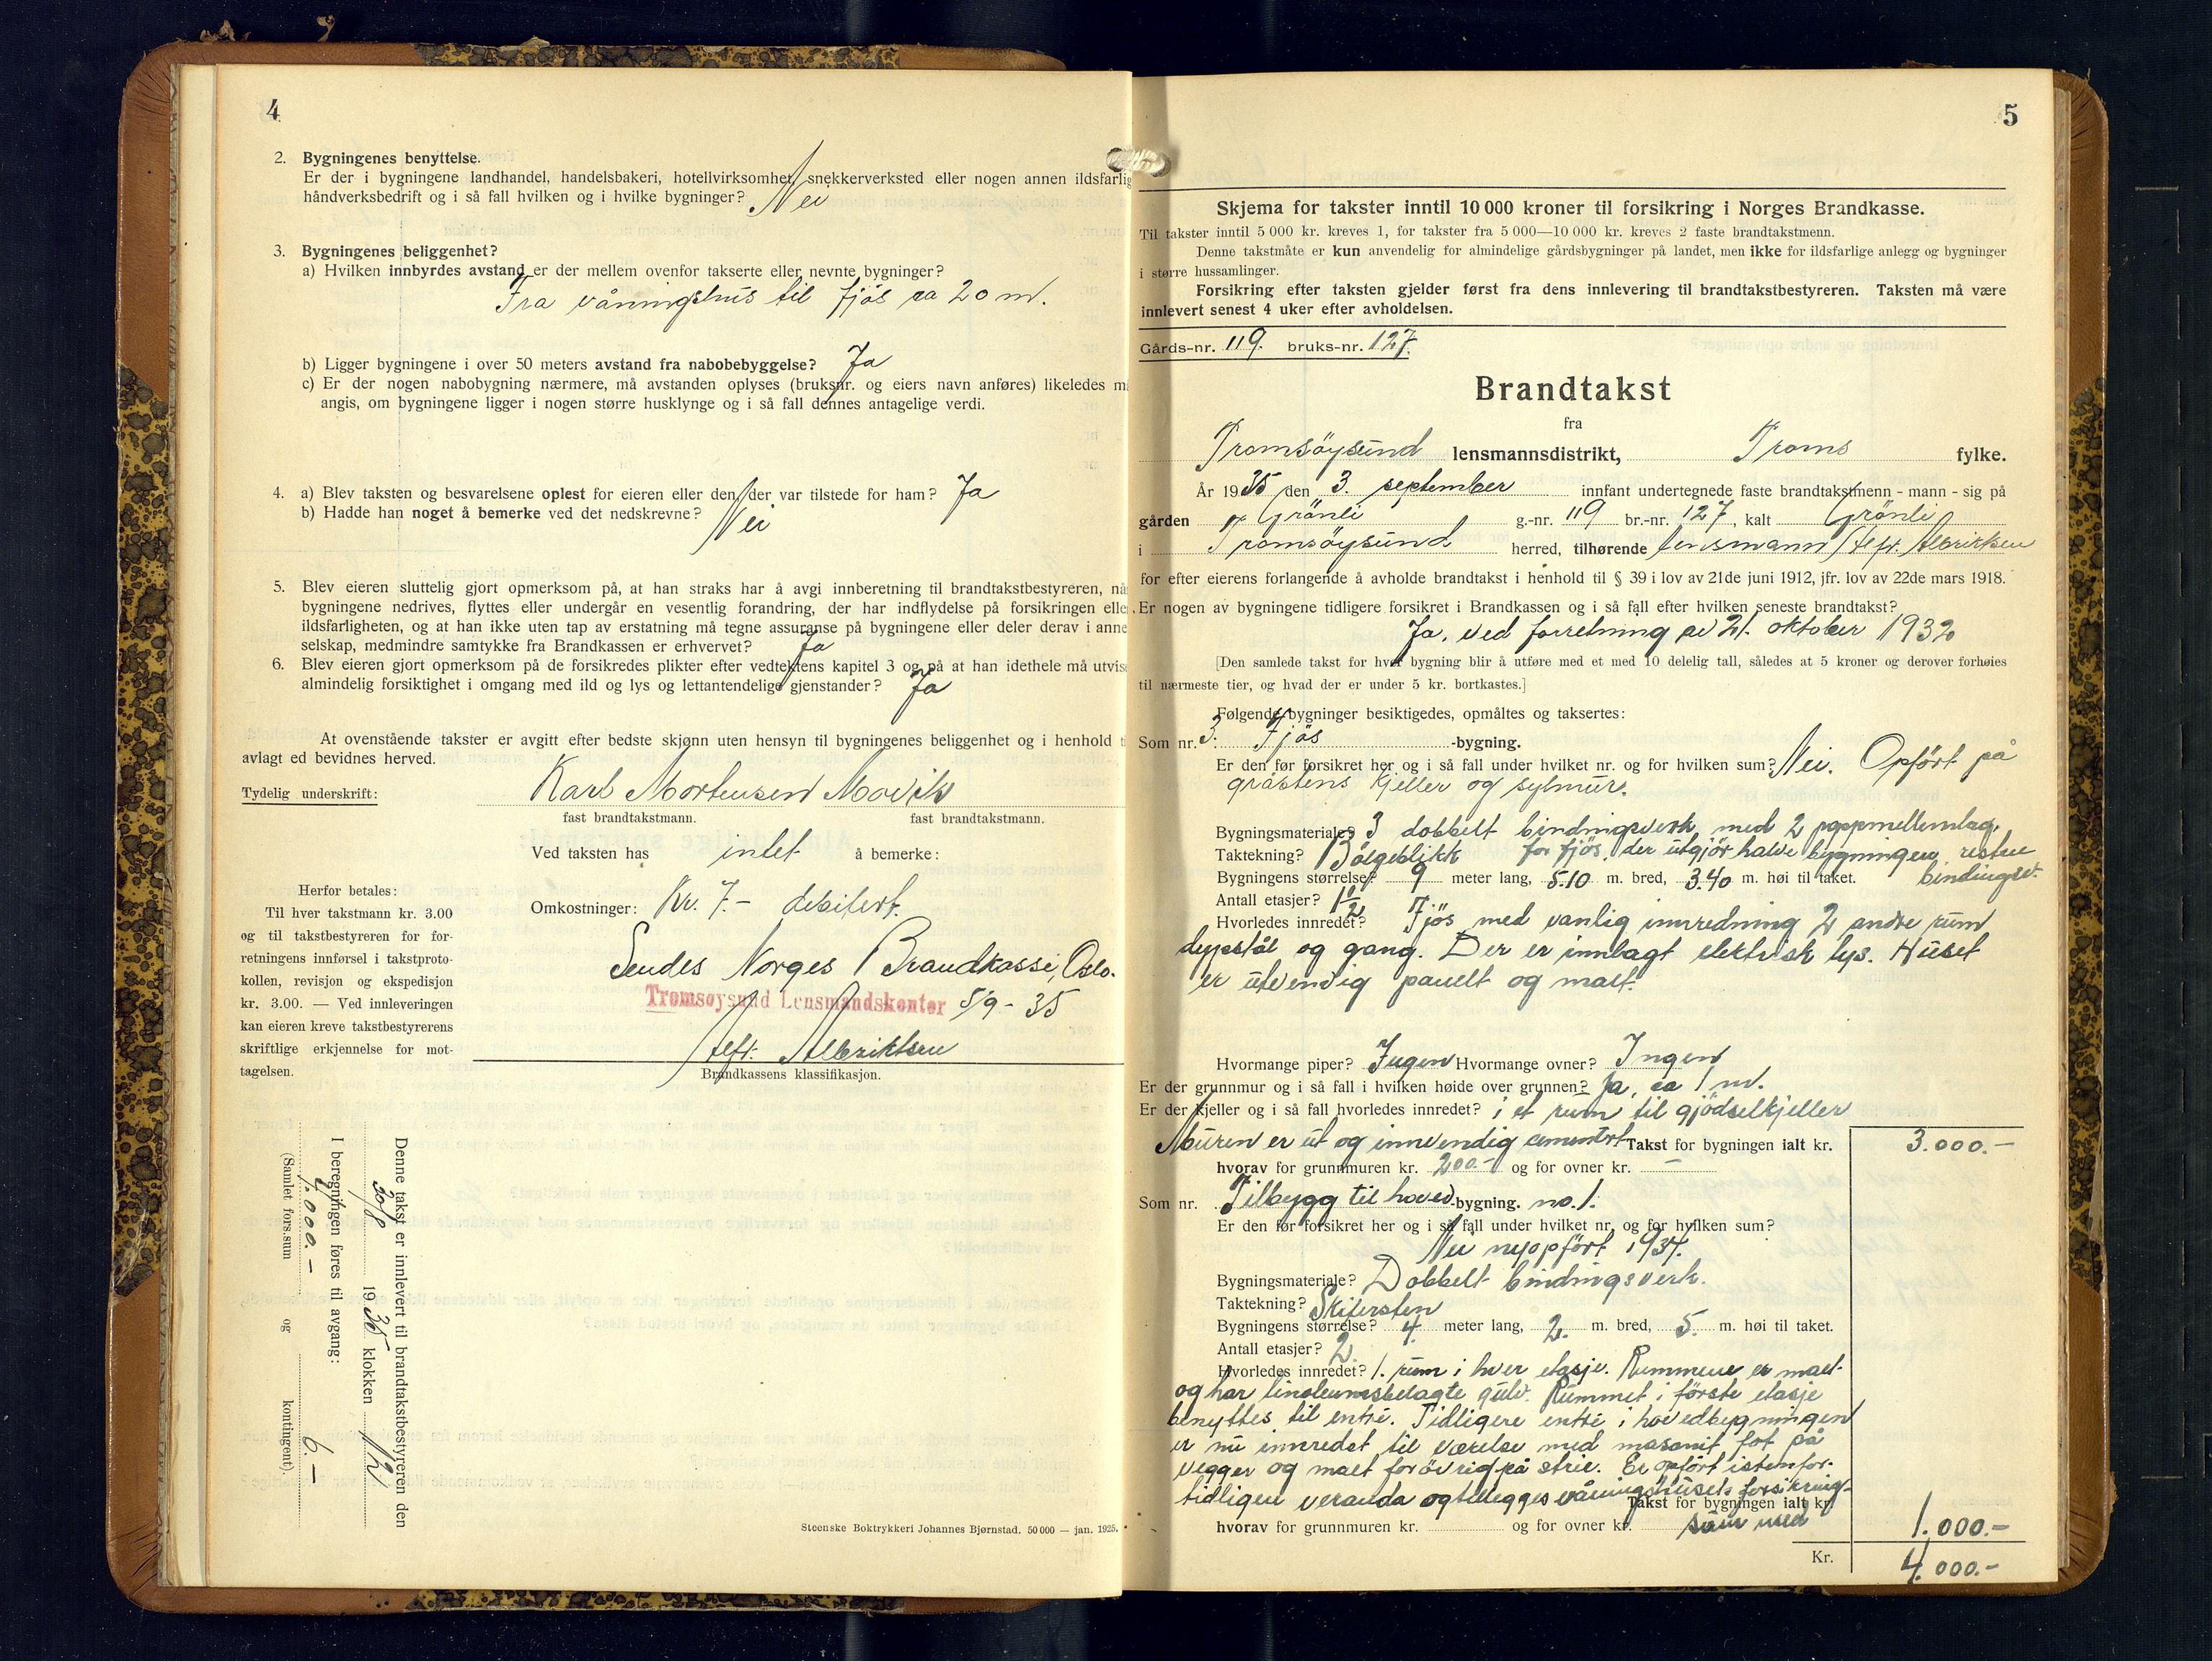 4
2. Bygningenes benyttelse.
Er der i bygningene landhandel, handelsbakeri, hotellvirksomhet, snekkerverksted eller nogen annen ildsfarlig
håndverksbedrift og i så fall hvilken og i hvilke bygninger? Nei
3. Bygningenes beliggenhet?
a) Hvilken innbyrdes avstand er der mellem ovenfor takserte eller nevnte bygninger?
Fra våningshus til fjös ca 20 m.
b) Ligger bygningene i over 50 meters avstand fra nabobebyggelse? Ja
c) Er der nogen nabobygning nærmere, må avstanden oplyses (bruksnr. og eiers navn anføres) likeledes m
angis, om bygningene ligger i nogen større husklynge og i så fall dennes antagelige verdi.
4. a) Blev taksten og besvarelsene oplest for eieren eller den, der var tilstede for ham? Ja
b) Hadde han noget å bemerke ved det nedskrevne? Nei
5. Blev eieren sluttelig gjort opmerksom på, at han straks har å avgi innberetning til brandtakstbestyreren, nå
bygningene nedrives, flyttes eller undergår en vesentlig forandring, der har indflydelse på forsikringen elle
ildsfarligheten, og at han ikke uten tap av erstatning må tegne assuranse på bygningene eller deler derav i anne
selskap, medmindre samtykke fra Brandkassen er erhvervet? Ja
6. Blev eieren gjort opmerksom på de forsikredes plikter efter vedtektens kapitel 3 og på at han idethele må utvis
almindelig forsiktighet i omgang med ild og lys og lettantendelige gjenstander? Ja
At ovenstående takster er avgitt efter bedste skjønn uten hensyn til bygningenes beliggenhet og i henhold t
avlagt ed bevidnes herved.
Tydelig underskrift: Karl Mortensen Movik
fast brandtakstmann. fast brandtakstmann.
Ved taksten has intet å bemerke:
Herfor betales:
Til hver takstmann kr. 3.00
og til takstbestyreren for for-
retningens innførsel i takstproto-
kollen, revisjon og ekspedisjon
kr. 3.00. — Ved innleveringen
kan eieren kreve takstbestyrerens
skriftlige erkjennelse for mot-
tagelsen.
Omkostninger: Kr. 7.- debitert.
Sendes Norges Brandkasse, Oslo.
Tromsøysund Lensmandskontor 5/9 - 35
Alfr. Albriktsen
Brandkassens klassifikasjon.
Denne takst er innlevert til brandtakstbestyreren den
30/8 1935 klokken 12
I beregningen føres til avgang:
4.000.- 6.-
(Samlet fors.sum og kontingent).
Steenske Boktrykkeri Johannes Bjørnstad. 50 000 — jan. 1925.
5
Skjema for takster inntil 10 000 kroner til forsikring i Norges Brandkasse.
Til takster inntil 5 000 kr. kreves 1, for takster fra 5 000—10 000 kr. kreves 2 faste brandtakstmenn.
Denne takstmåte er kun anvendelig for almindelige gårdsbygninger på landet, men ikke for ildsfarlige anlegg og bygninger
i større hussamlinger.
Forsikring efter taksten gjelder først fra dens innlevering til brandtakstbestyreren. Taksten må være
innlevert senest 4 uker efter avholdelsen.
Gårds-nr. 119. bruks-nr. 127.
Brandtakst
fra
Tromsöysund lensmannsdistrikt, Troms fylke.
År 1935 den 3. september innfant undertegnede faste brandtakstmenn - mann - sig på
gården Grönli g.-nr. 119 br.-nr. 127, kalt Grönli
i Tromsöysund herred, tilhørende lensmann Alfr. Albriktsen
for efter eierens forlangende å avholde brandtakst i henhold til § 39 i lov av 21de juni 1912, jfr. lov av 22de mars 1918.
Er nogen av bygningene tidligere forsikret i Brandkassen og i så fall efter hvilken seneste brandtakst?
Ja, ved forretning av 21. oktober 1932
[Den samlede takst for hver bygning blir å utføre med et med 10 delelig tall, således at 5 kroner og derover forhøies
til nærmeste tier, og hvad der er under 5 kr. bortkastes.]
Følgende bygninger besiktigedes, opmåltes og taksertes:
Som nr. 3. Fjös -bygning.
Er den før forsikret her og i så fall under hvilket nr. og for hvilken sum? Nei. Opfört på
gråstens kjeller og sylmur.
Bygningsmateriale? 3 dobbelt bindingsverk med 2 pappmellemlag,
Taktekning? Bölgeblikk for fjös, der utgjör halve bygningen, resten
bindingsv.
Bygningens størrelse? 9 meter lang, 5.10 m. bred, 3.40 m. høi til taket.
Antall etasjer? 1 1/2
Hvorledes innredet? Fjös med vanlig innredning 2 andre rum
og gang. Der er innlagt elektrisk lys. Huset
er utvendig panelt og malt.
Hvormange piper? Ingen Hvormange ovner? Ingen
Er der grunnmur og i så fall i hvilken høide over grunnen? Ja, ca 1 m.
Er der kjeller og i så fall hvorledes innredet? i et rum til gjödselkjeller
Muren er ut og innvendig cementert Takst for bygningen ialt kr. 3.000.-
hvorav for grunnmuren kr. 200.- og for ovner kr. -
Som nr. Tilbygg til hoved -bygning. no. 1.
Er den før forsikret her og i så fall under hvilket nr. og for hvilken sum?
Nei nyopfört 1934.
Bygningsmateriale? Dobbelt bindingsverk.
Taktekning? Skifersten
Bygningens størrelse? 4. meter lang, 2. m. bred, 5. m. høi til taket.
Antall etasjer? 2.
Hvorledes innredet? 1. rum i hver etasje. Rummene er malt
og har linoleumsbelagte gulv. Rummet i förste etasje
benyttes til entré. Tidligere entré i hovedbygningen
er nu innredet til værelse med masonit fot på
vegger og malt forövrig på strie. Er opfört istedenfor
tidligere veranda og tillegges våningshusets forsikring-
Takst for bygningen ialt kr.
hvorav for grunnmuren kr. og for ovner kr. sum med 1.000.-
Kr. 4.000.-